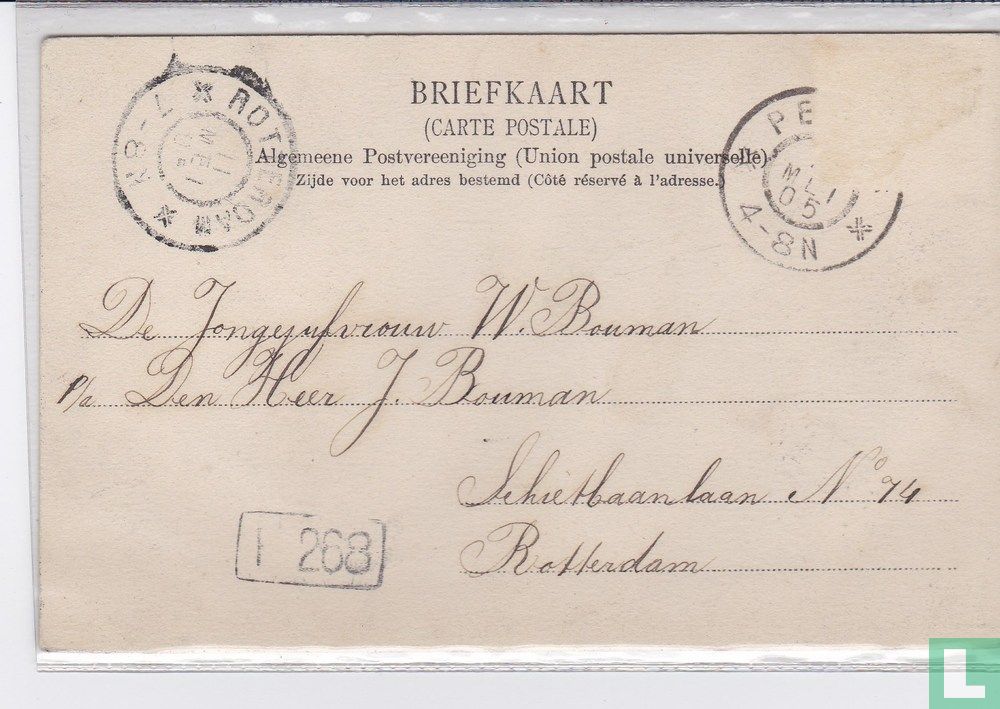 BRIEFKAART
(CARTE POSTALE)
Algemeene Postvereeniging (Union postale universelle)
Zijde voor het adres bestemd (Côté réservé à l'adresse.)
ROTTERDAM
7-8N
PE
05
4-8N
De Jongejufvrouw W. Bouman
p/a Den Heer J. Bouman
Schietbaanlaan No 74
Rotterdam
268
L